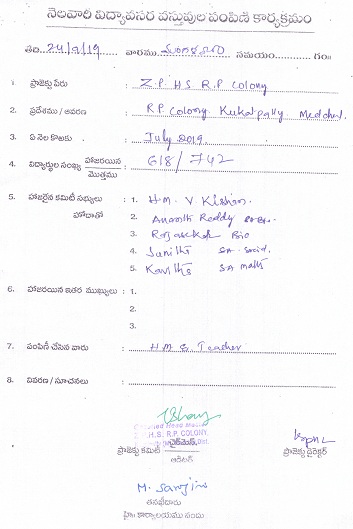 నెలవారి విద్యావసర వస్తువుల పంపిణి కార్యక్రమం
తేది 24/9/19 వారము మంగళవారం సమయం గం॥
1. ప్రాజెక్టు పేరు : Z.P.H.S R.P Colony
2. ప్రదేశము / ఆవరణ : R.P Colony. Kukatpally Medchal.
3. ఏ నెల కొఱకు : July 2019.
4. విద్యార్థుల సంఖ్య హాజరయిన : 618/742
మొత్తము
5. హాజరైన కమిటి సభ్యులు : 1. H.M. V Kishan.
హోదాతో 2. Ananth Reddy
3. Rajasekhar Bio
4. Sunitha SA. Social.
5. Kavitha SA maths
6. హాజరయిన ఇతర ముఖ్యులు : 1.
2.
3.
7. పంపిణీ చేసిన వారు : H.M & Teacher
8. వివరణ / సూచనలు :
H.S. R.P. COLONY
ప్రాజెక్టు కమిటీ చైర్మెన్ ప్రాజెక్టు డైరెక్టర్
ఆడిటర్
M. Sarojini
తనిఖీదారు
హై॥ కార్యాలయము నందు